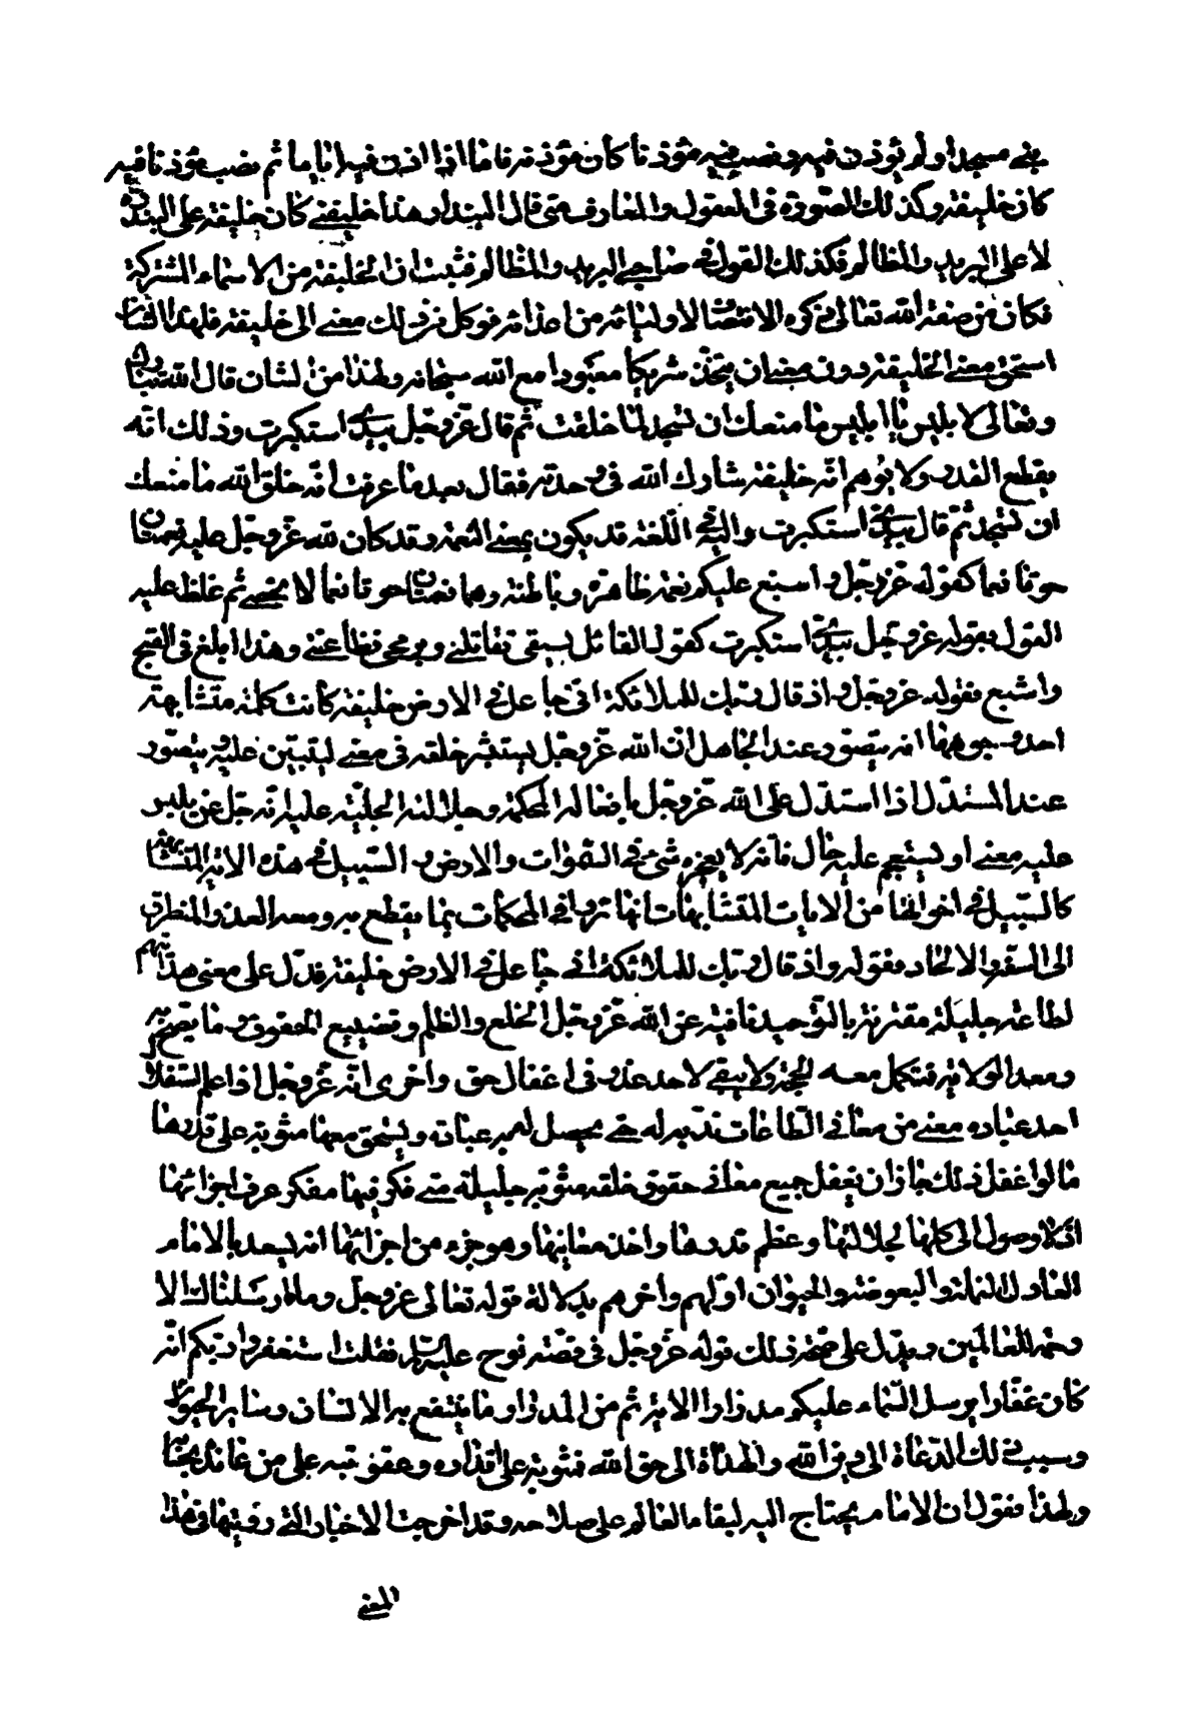 بنى مسجدا ولم يؤذن فيه و نصب فيه مؤذنا كان مؤذنه فاما اذا اذن فيه اياما ثم نصب مؤذنا فيه
كان خليفته و كذلك الصورة فى العقول و المعارف متى قال البندار هذا خليفتى كان خليفته على البندرة
لا على البريد و المظالم فكذلك القول فى صاحبى البريد و المظالم فثبت ان الخليفة من الاسماء المشتركة
فكان من صفة الله تعالى ذكره الانتصاف لاوليائه من اعدائه فوكل من ذلك معنى الى خليفته فلهذا الشان
استحق معنى الخليفة دون معنى ان يتخذ شريكا معبودا مع الله سبحانه و لهذا من الشان قال الله تبارك
و تعالى لابليس يا ابليس ما منعك ان تسجد لما خلقت ثم قال عز و جل بيدى استكبرت و ذلك انه
يقطع العذر و لا يوهم انه خليفة شارك الله فى وحدته فقال بعد ما عرفت انه خلق الله ما منعك
ان تسجد ثم قال بيدى استكبرت و اليد فى اللغة قد يكون بمعنى النعمة و قد كان لله عز و جل عليه نعمتان
حوتا نعما كقوله عز و جل و اسبغ عليكم نعمه ظاهرة و باطنة و هما نعمتان حوتا نعما لا تحصى ثم غلظ عليه
القول بقوله عز و جل بيدى استكبرت كقول القائل بسيفى تقاتلنى و برمحى تطاعننى و هذا ابلغ فى القبح
و اشنع فقوله عز و جل و اذ قال ربك للملائكة انى جاعل فى الارض خليفة كانت كلمة متشابهة
احد وجوهها انه يتصور عند الجاهل ان الله عز و جل يستشير خلقه فى معنى ليتبين عليه و يتصور
عند المستدل اذا استدل على الله عز و جل بافعاله المحكمة و جلالته الجليلة عليه انه جل عن يلبس
عليه معنى او يستعجم عليه حال فانه لا يعجزه شىء فى السموات و الارض و السبيل فى هذه الاية المتشابهة
كالسبيل فى اخواتها من الايات المتشابهات انها ترد الى المحكمات مما يقطع به و معه العذر المتطرق
الى السفه و الالحاد فقوله و اذ قال ربك للملائكة انى جاعل فى الارض خليفة فدل على معنى هدايتهم
لطاعة جليلة مقترنة بالتوحيد نافية عن الله عز و جل الخلع و الظلم و تضييع الحقوق و ما يصح به
و معه الولاية فتكمل معه الحجة و لا يبقى لاحد عذر فى اغفال حق و اخرى انه عز و جل اذا علم استقلال
احد عباده معنى من معانى الطاعات ندبه له حتى يحصل له به عبادة و يستحق معها مثوبة على قدرها
ما لو اغفل ذلك جاز ان يغفل جميع معانى حقوق خلقه مثوبة جليلة متى فكر فيها مفكر عرف اجزائها
اذ لا وصول الى كلها لجلالتها و عظم قدرها و احد معانيها و هو جزء من اجزائها انه يسعد بالامام
العادل النملة و البعوضة و الحيوان اولهم و اخرهم بدلالة قوله تعالى عز و جل و ما ارسلناك الا
رحمة للعالمين و يدل على صحة ذلك قوله عز و جل فى قصة نوح عليه السلام فقلت استغفروا ربكم انه
كان غفارا يرسل السماء عليكم مدرارا الاية ثم من المدرار ما ينتفع به الانسان و ساير الحيوان
و سبب ذلك الدعاة الى دين الله و الهداة الى حق الله فمثوبته على اقداره و عقوبته على من عانده بحسابه
و لهذا نقول ان الامام يحتاج اليه لبقاء العالم على صلاحه و قد اخرجت الاخبار التى رويتها فى هذا
المعنى